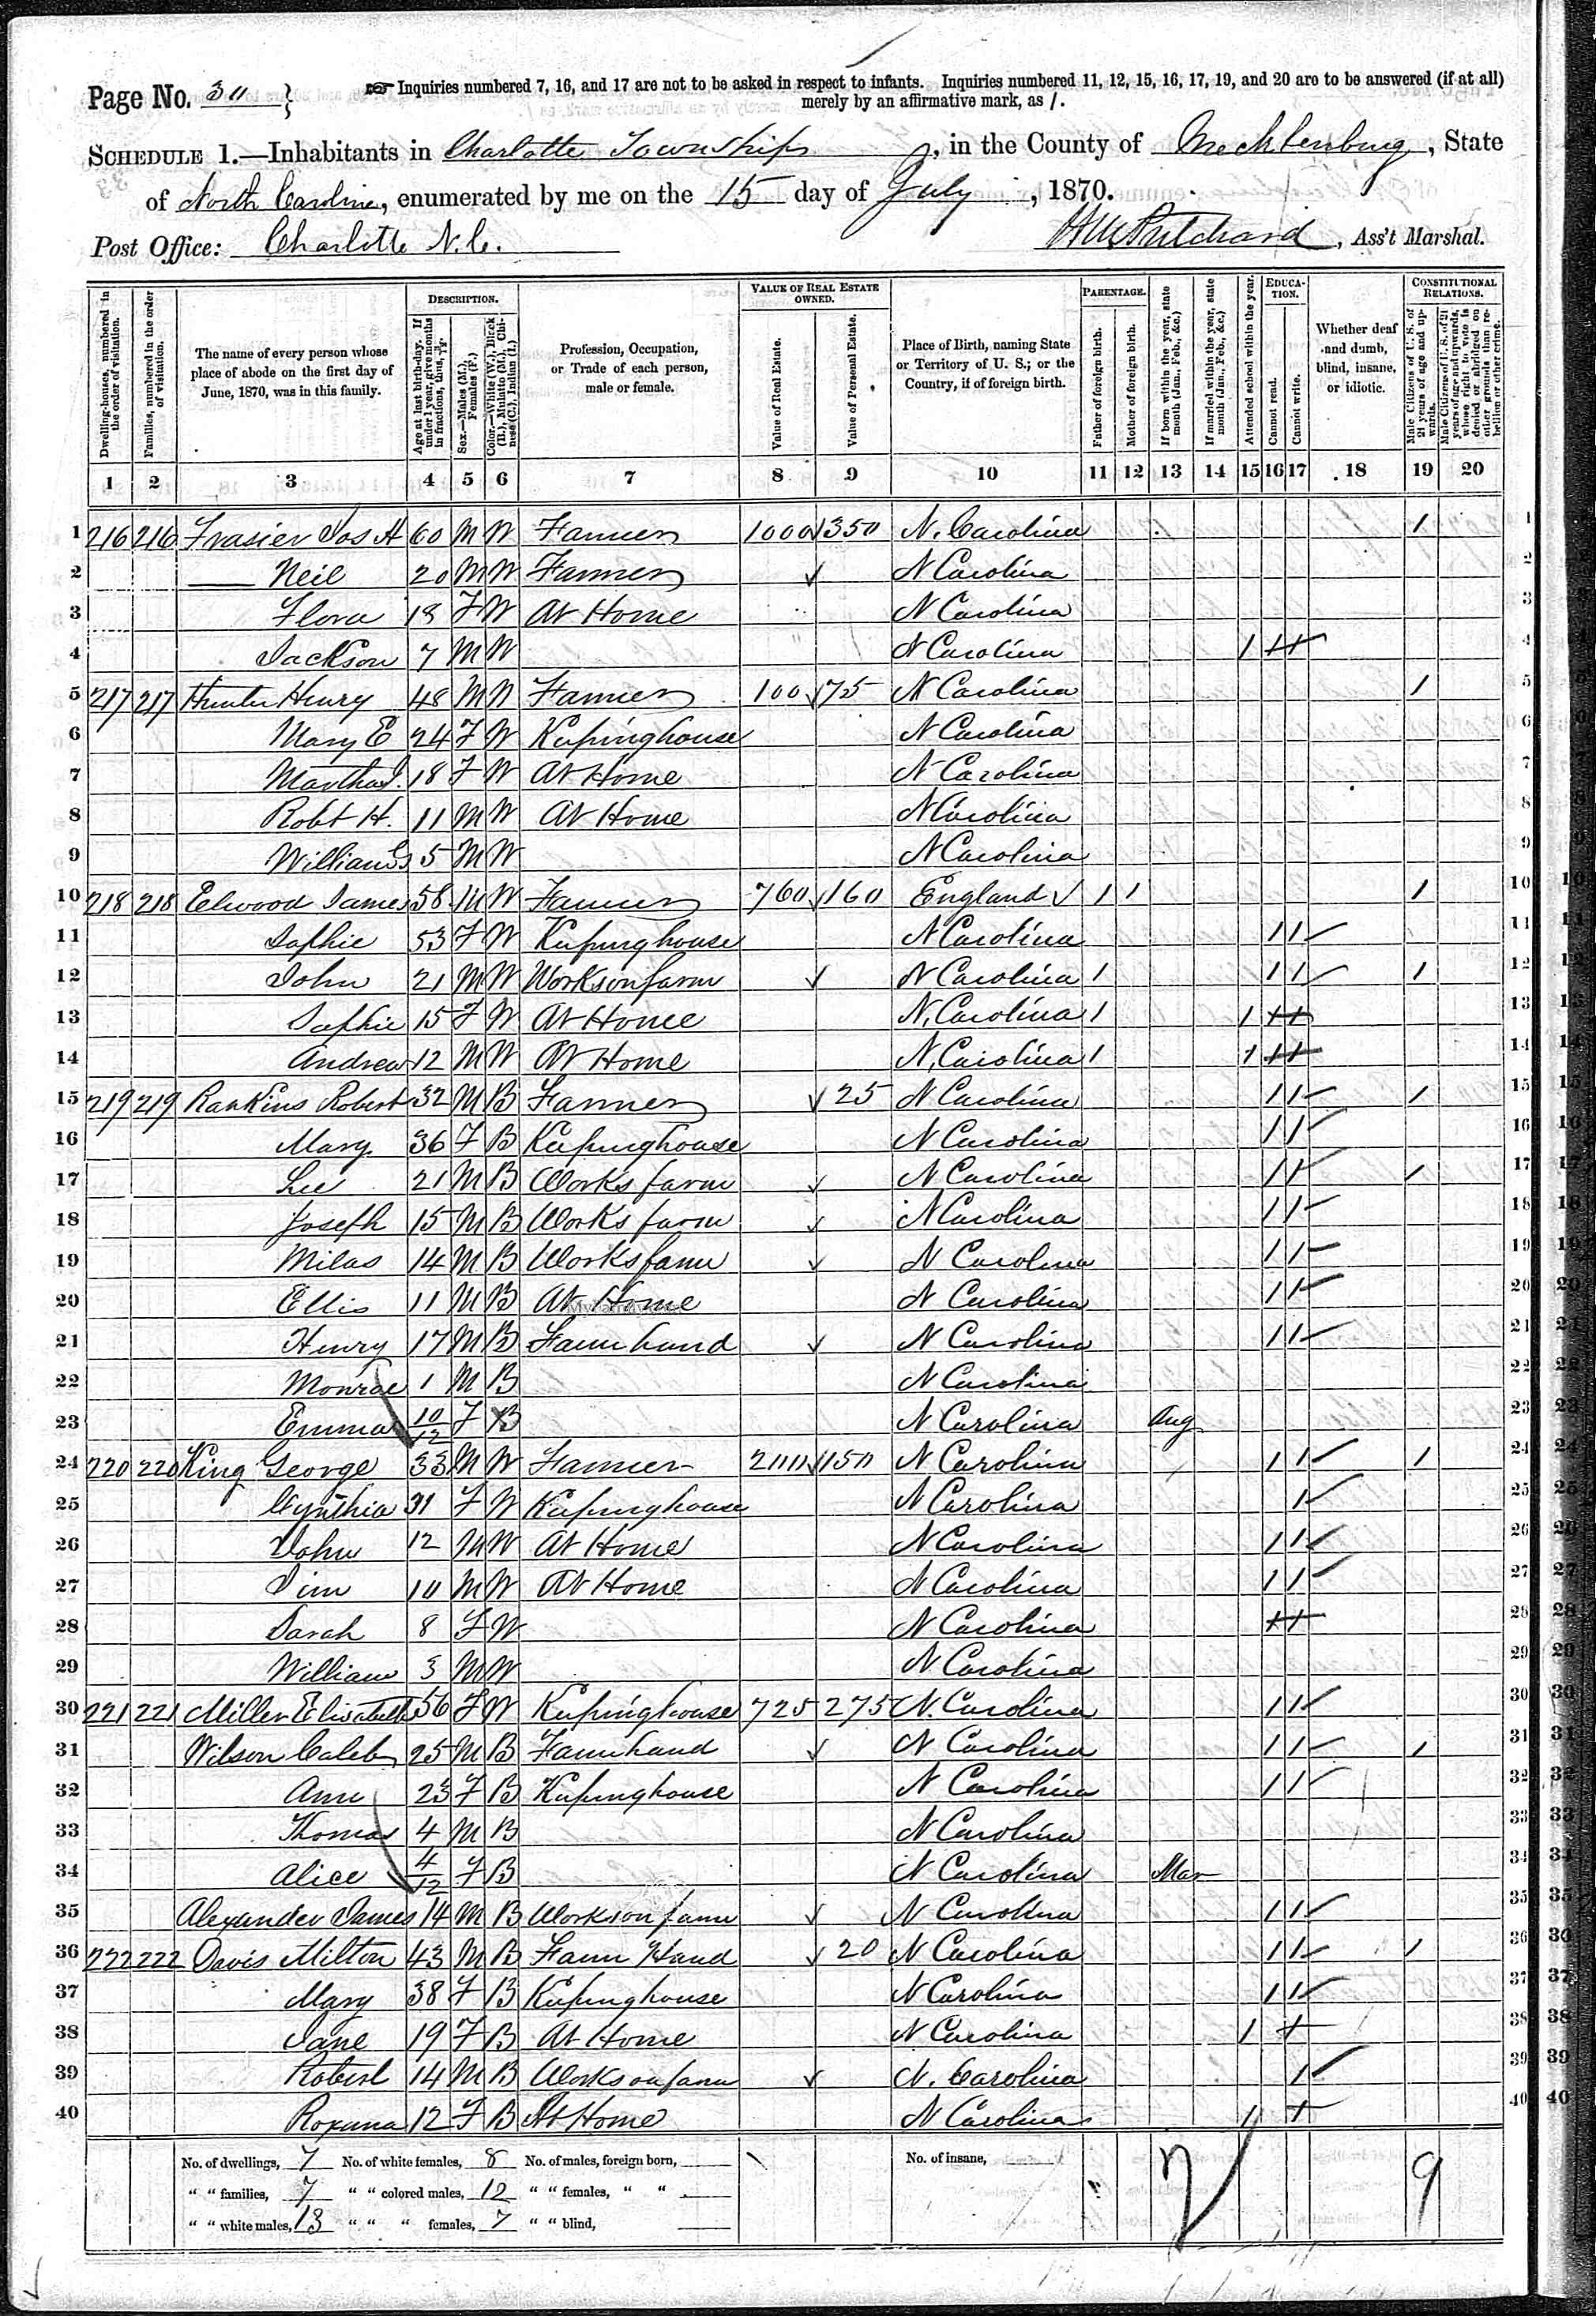 Page No. 30
Inquiries numbered 7, 16, and 17 are not to be asked in respect to infants. Inquiries numbered 11, 12, 15, 16, 17, 19, and 20 are to be answered (if at all)
merely by an affirmative mark, as /.
SCHEDULE 1.—Inhabitants in Charlotte Township, in the County of Mecklenburg, State
of North Carolina, enumerated by me on the 15 day of July, 1870.
Post Office: Charlotte N.C. Pritchard, Ass't Marshal.
Dwelling-houses, numbered in the order of visitation.
Families, numbered in the order of visitation.
The name of every person whose place of abode on the first day of June, 1870, was in this family.
DESCRIPTION.
Age at last birth-day. If under 1 year, give months in fractions, thus, 3/12.
Sex.—Males (M.), Females (F.)
Color.—White (W.), Black (B.), Mulatto (M.), Chinese (C.), Indian (I.)
Profession, Occupation, or Trade of each person, male or female.
VALUE OF REAL ESTATE OWNED.
Value of Real Estate.
Value of Personal Estate.
Place of Birth, naming State or Territory of U. S.; or the Country, if of foreign birth.
PARENTAGE.
Father of foreign birth.
Mother of foreign birth.
If born within the year, state month (Jan., Feb., &c.)
If married within the year, state month (Jan., Feb., &c.)
Attended school within the year.
EDUCATION.
Cannot read.
Cannot write.
Whether deaf and dumb, blind, insane, or idiotic.
CONSTITUTIONAL RELATIONS.
Male Citizens of U. S. of 21 years of age and upwards.
Male Citizens of U. S. of 21 years of age and upwards, whose right to vote is denied or abridged on other grounds than rebellion or other crime.
1 2 3 4 5 6 7 8 9 10 11 12 13 14 15 16 17 18 19 20
1 216 216 Frasier Jas A 60 M W Farmer 1000 350 N. Carolina / 1
2 —— Neil 20 M W Farmer N Carolina 2
3 Flora 18 F W At Home N Carolina 3
4 Jackson 7 M W N Carolina / / / 4
5 217 217 Hunter Henry 48 M W Farmer 100 75 N Carolina / 5
6 Mary E 24 F W Keepinghouse N Carolina 6
7 Martha J. 18 F W At Home N Carolina 7
8 Robt H. 11 M W At Home N Carolina 8
9 William 5 M W N Carolina 9
10 218 218 Elwood James 58 M W Farmer 760 160 England / / / 10
11 Sophie 53 F W Keepinghouse N Carolina / / 11
12 John 21 M W Works on farm N Carolina / / / / 12
13 Sophie 15 F W At Home N. Carolina / / / / 13
14 Andrew 12 M W At Home N. Carolina / / / / 14
15 219 219 Rankins Robert 32 M B Farmer 25 N Carolina / / / 15
16 Mary 36 F B Keepinghouse N Carolina / / 16
17 Lee 21 M B Works farm N Carolina / / / 17
18 Joseph 15 M B Works farm N Carolina / / 18
19 Milas 14 M B Works farm N Carolina / / 19
20 Ellis 11 M B At Home N Carolina / / 20
21 Henry 17 M B Farm hand N Carolina / / 21
22 Monroe 1 M B N Carolina 22
23 Emma 10/12 F B N Carolina Aug 23
24 220 220 King George 33 M W Farmer 200 150 N Carolina / / / 24
25 Cynthia 31 F W Keepinghouse N Carolina / 25
26 John 12 M W At Home N Carolina / / 26
27 Jim 10 M W At Home N Carolina / / 27
28 Sarah 8 F W N Carolina / / 28
29 William 3 M W N Carolina 29
30 221 221 Miller Elisabeth 56 F W Keepinghouse 725 275 N. Carolina / / 30
31 Wilson Caleb 25 M B Farm hand N Carolina / / / 31
32 Ann 23 F B Keepinghouse N Carolina / / 32
33 Thomas 4 M B N Carolina 33
34 Alice 4/12 F B N Carolina Mar 34
35 Alexander James 14 M B Works on farm N Carolina / / 35
36 222 222 Davis Milton 43 M B Farm Hand 20 N Carolina / / / 36
37 Mary 38 F B Keepinghouse N Carolina / / 37
38 Jane 19 F B At Home N Carolina / / 38
39 Robert 14 M B Works on farm N. Carolina / 39
40 Roxana 12 F B At Home N Carolina / / 40
No. of dwellings, 7 No. of white females, 8 No. of males, foreign born, No. of insane,
" " families, 7 " " colored males, 12 " " females, " "
" " white males, 13 " " " females, 7 " " blind,
2 9